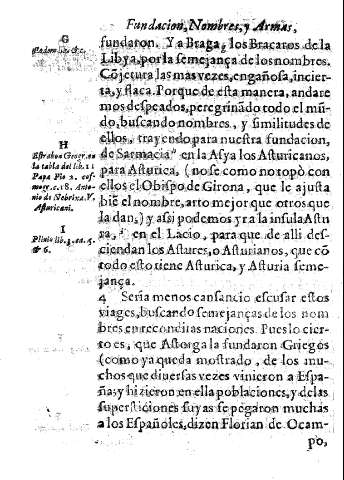 Fundacion, Nombres, y Armas,
fundaron. Y a Braga, los Bracaros de la
Libya, por la semejança de los nombres.
Cõjetura las mas vezes, engañosa, incier-
ta, y flaca. Porque de esta manera, andare
mos despeados, peregrinãdo todo el mũ-
do, buscando nombres, y similitudes de
ellos, trayendo para nuestra fundacion,
de Sarmacia en la Asya los Asturicanos,
para Asturica, (no se como no topò con
ellos el Obispo de Girona, que le ajusta
biẽ el nombre, arto mejor que otros que
la dan,) y assi podemos yr a la insula Astu
ra, en el Lacio, para que de alli des-
ciendan los Astures, o Asturianos, que cõ
todo esto tiene Asturica, y Asturia seme-
jança.
4 Seria menos cansancio escusar estos
viages, buscando semejanças de los nom
bres en reconditas naciones. Pues lo cier-
to es, que Astorga la fundaron Griegos
(como ya queda mostrado, de los mu-
chos que diuersas vezes vinieron a Espa-
ña, y hizieron en ella poblaciones, y de las
supersticiones suyas se pegaron muchas
a los Españoles, dizen Florian de Ocam-
po,
G
H
Estrabon Geogr. en
la tabla del lib. 11
Papa Pio 2. cos-
mogr. c. 18. Anto-
nio de Nebrixa. V.
Asturicani.
I
Plinio lib. 3. ca. 5.
& 6.